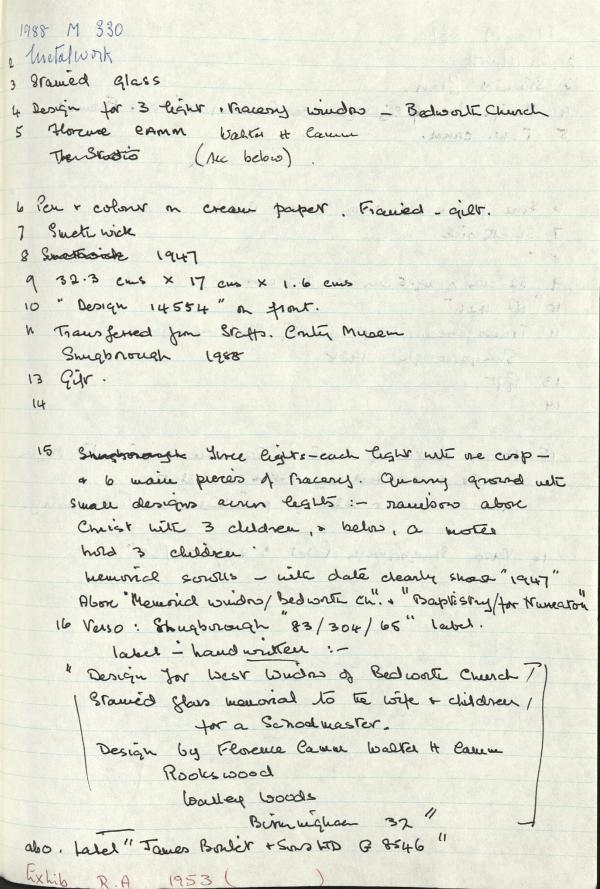 1988 M 330
2 Metalwork
3 Stained Glass
4 Design for 3 light + tracery window – Bedworth Church
5 Florence CAMM Walter H Camm
The Studio (See below).
6 Pen + colour on cream paper. Framed – gilt.
7 Smethwick
8 Smethwick 1947
9 32.3 cms × 17 cms × 1.6 cms
10 "Design 14554" on front.
11 Transferred from Staffs. County Museum
Shugborough 1988
13 Gift.
14
15 Shugborough Three lights – each light with one cusp –
+ 6 main pieces of tracery. Quarry ground with
small designs across lights :– rainbow above
Christ with 3 children, + below, a mother
hold 3 children
Memorial scrolls – with date clearly "1947"
Above "Memorial window/Bedworth Ch". + "Baptistry/for Nuneaton"
16 Verso : Shugborough "83/304/65" label.
label – handwritten :–
" Design for West Window of Bedworth Church /
Stained glass memorial to the wife + children /
for a Schoolmaster.
Design by Florence Camm Walter H Camm
Rookswood
Warley Woods
Birmingham 32 "
also. Label " James Bourlet + Sons LTD G 8546 "
Exhib R.A 1953 ( )